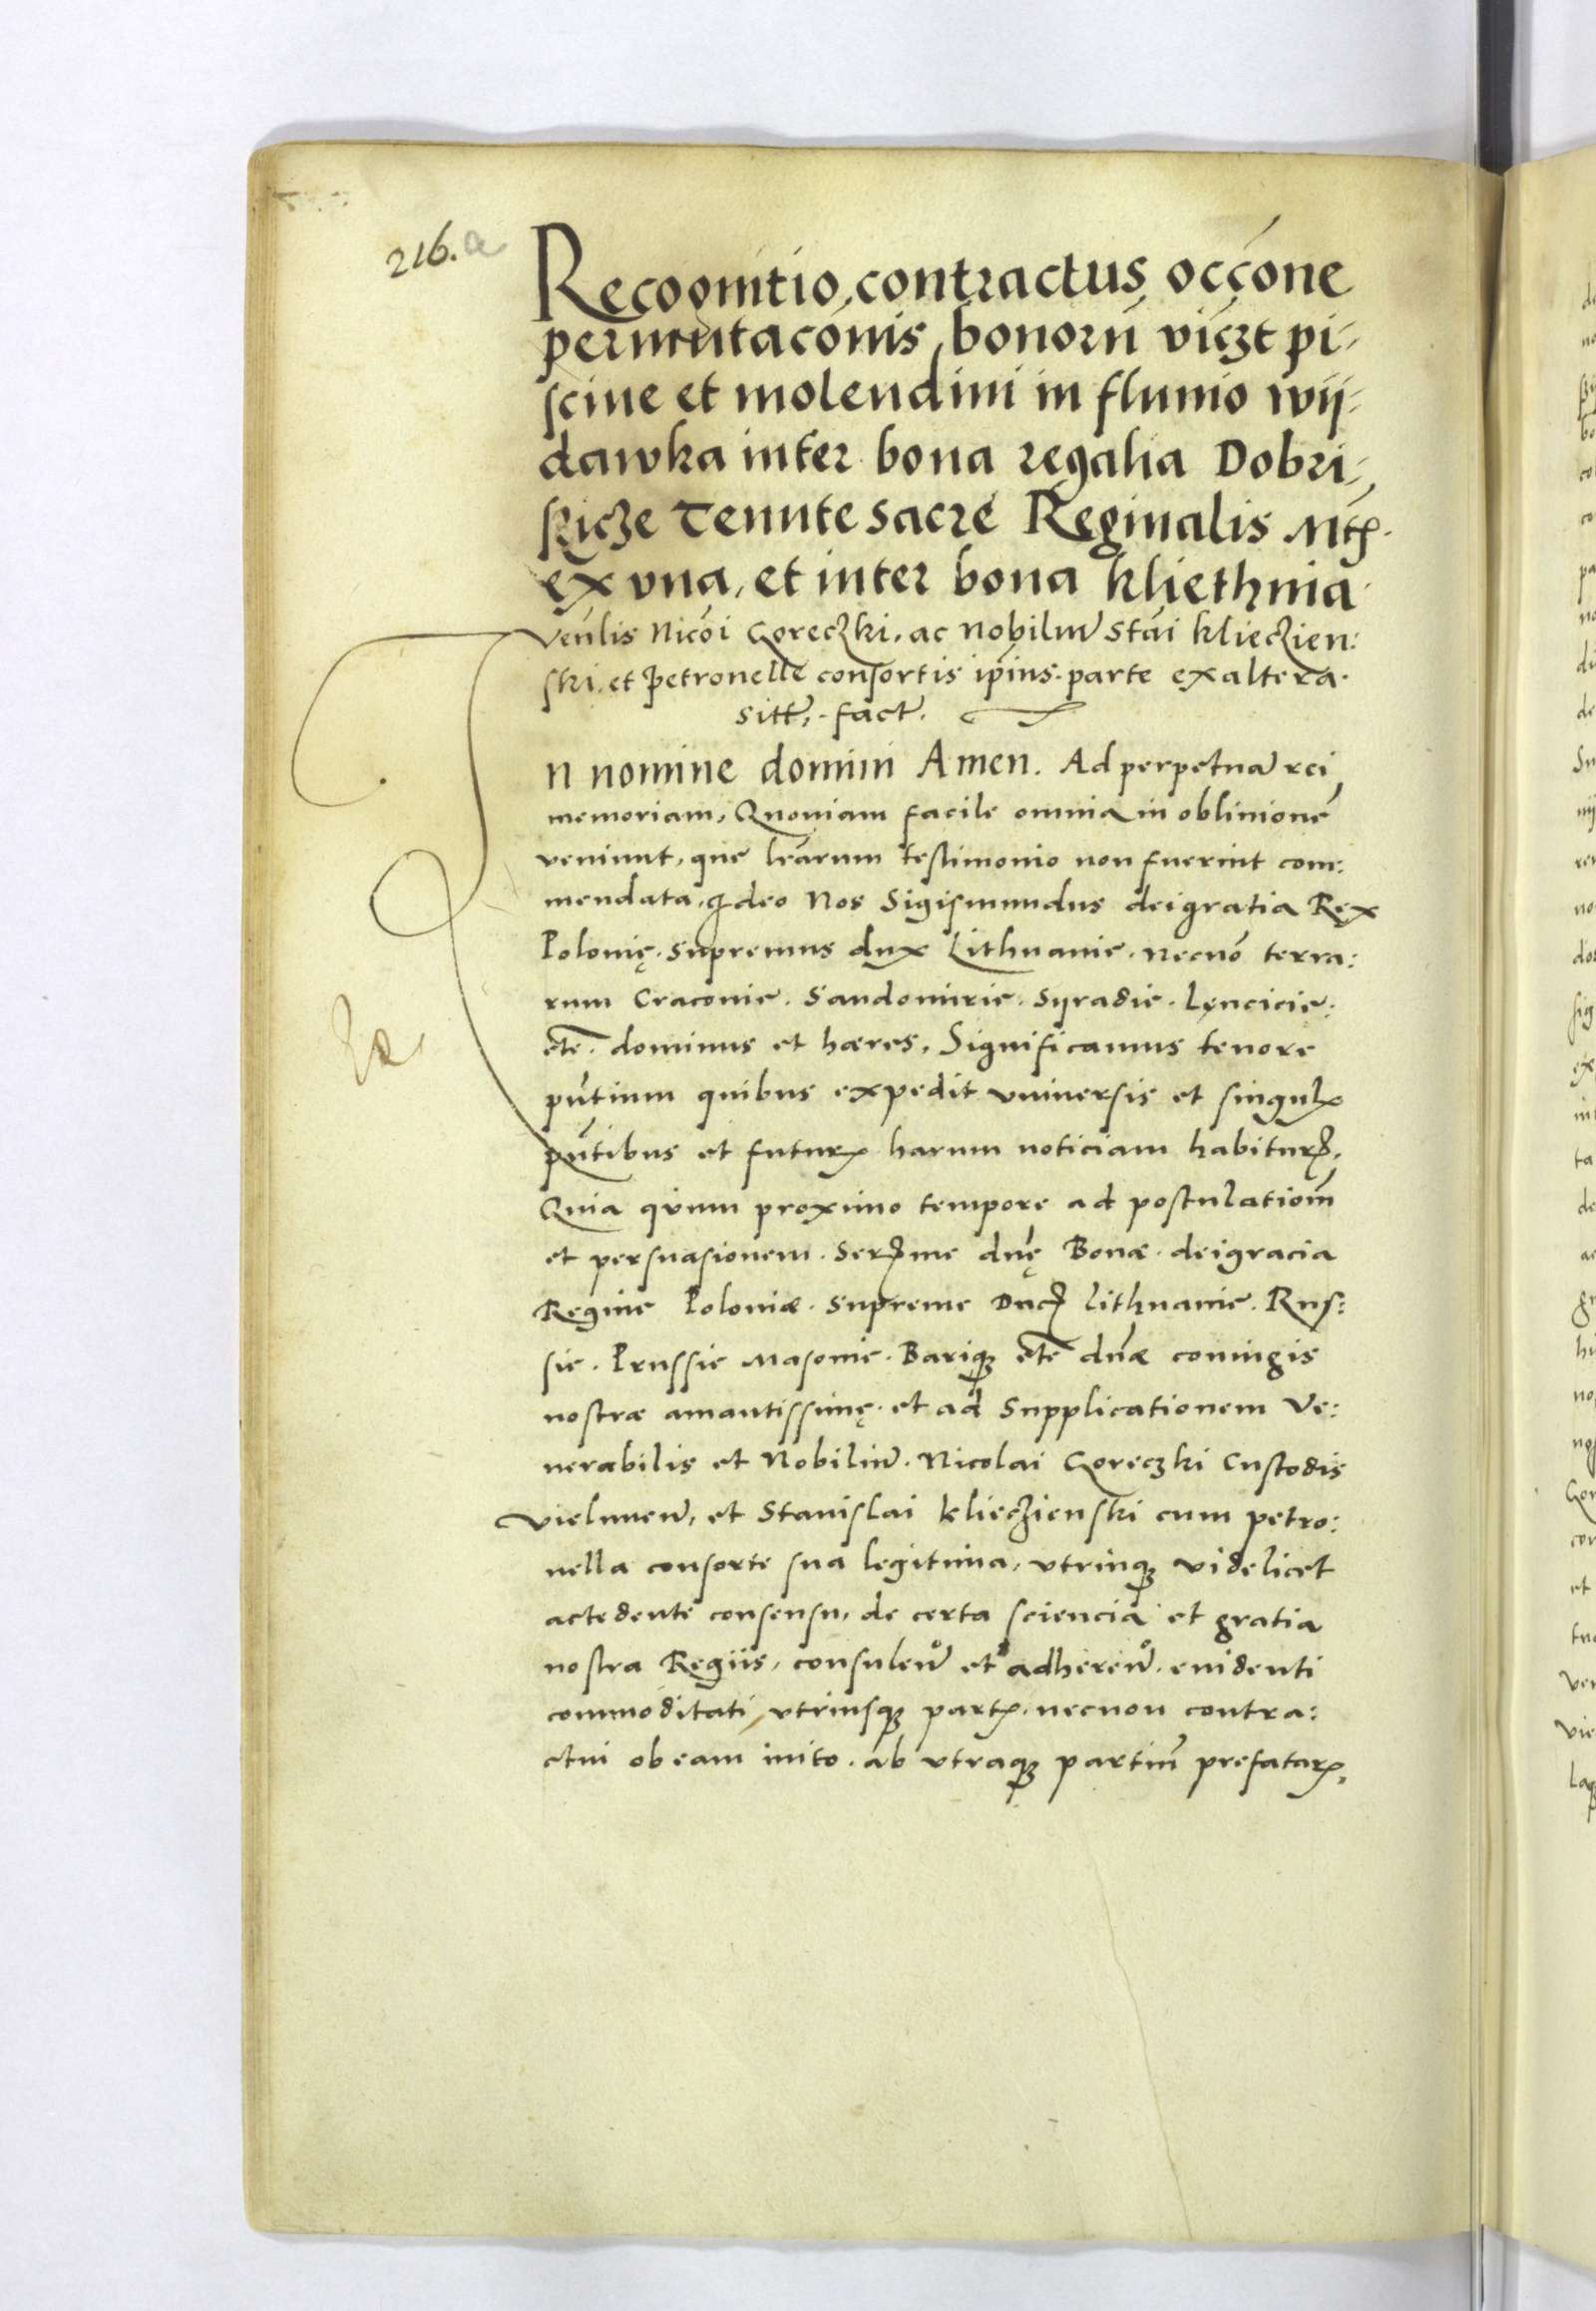 216.a
Recognitio contractus occōne
permutacōnis bonorū viczt pi-
scine et molendini in fluuio wij-
dawka inter bona regalia Dobri-
skicze Tenute sacre Reginalis Mtꝭ
ex vna, et inter bona kliethnia
Venlis Nicoī Goreczki, ac Nobiliū Staī klieczien:
ski, et petronelle consortis ip̄ius parte ex altera
sitt, fact.
In nomine domini Amen. Ad perpetuā rei
memoriam, Quoniam facile omnia in obliuionē
veniunt, que lr̄arum testimonio non fuerint com:
mendata, Ideo Nos Sigismundus dei gratia Rex
Polonię. supremus dux Lithuanie. necnō terra:
rum Cracouie. Sandomirie. Syradie. Lęncicie:
etc̄. dominus et hæres, Significamus tenore
pn̄tium quibus expedit vniuersis et singulꝭ
pn̄tibus et futurꝭ harum noticiam habiturꝭ.
Quia qͥum proximo tempore ad postulatiom̄
et persuasionem. Serꝭme dn̄ę Bonæ. dei gracia
Regine Poloniæ. Supreme Ducꝭ Lithuanie. Rus:
sie. Prussie Masouie. Bariqꝫ etc̄ dn̄æ coniugis
nostræ amantissimę. et ad Supplicationem Ve:
nerabilis et Nobiliū. Nicolai Goreczki Custodis
vieluneñ, et Stanislai klieczienski cum petro:
nella consorte sua legitima, vtrinqꝫ videlicet
accedente consensu, de certa sciencia et gratia
nostra Regiis, consuleñ et adhereñ. euidenti
commoditati, vtriusqꝫ partꝭ. necnon contra:
ctui ob eam inito. ab vtraqꝫ partiū prefatarꝭ,